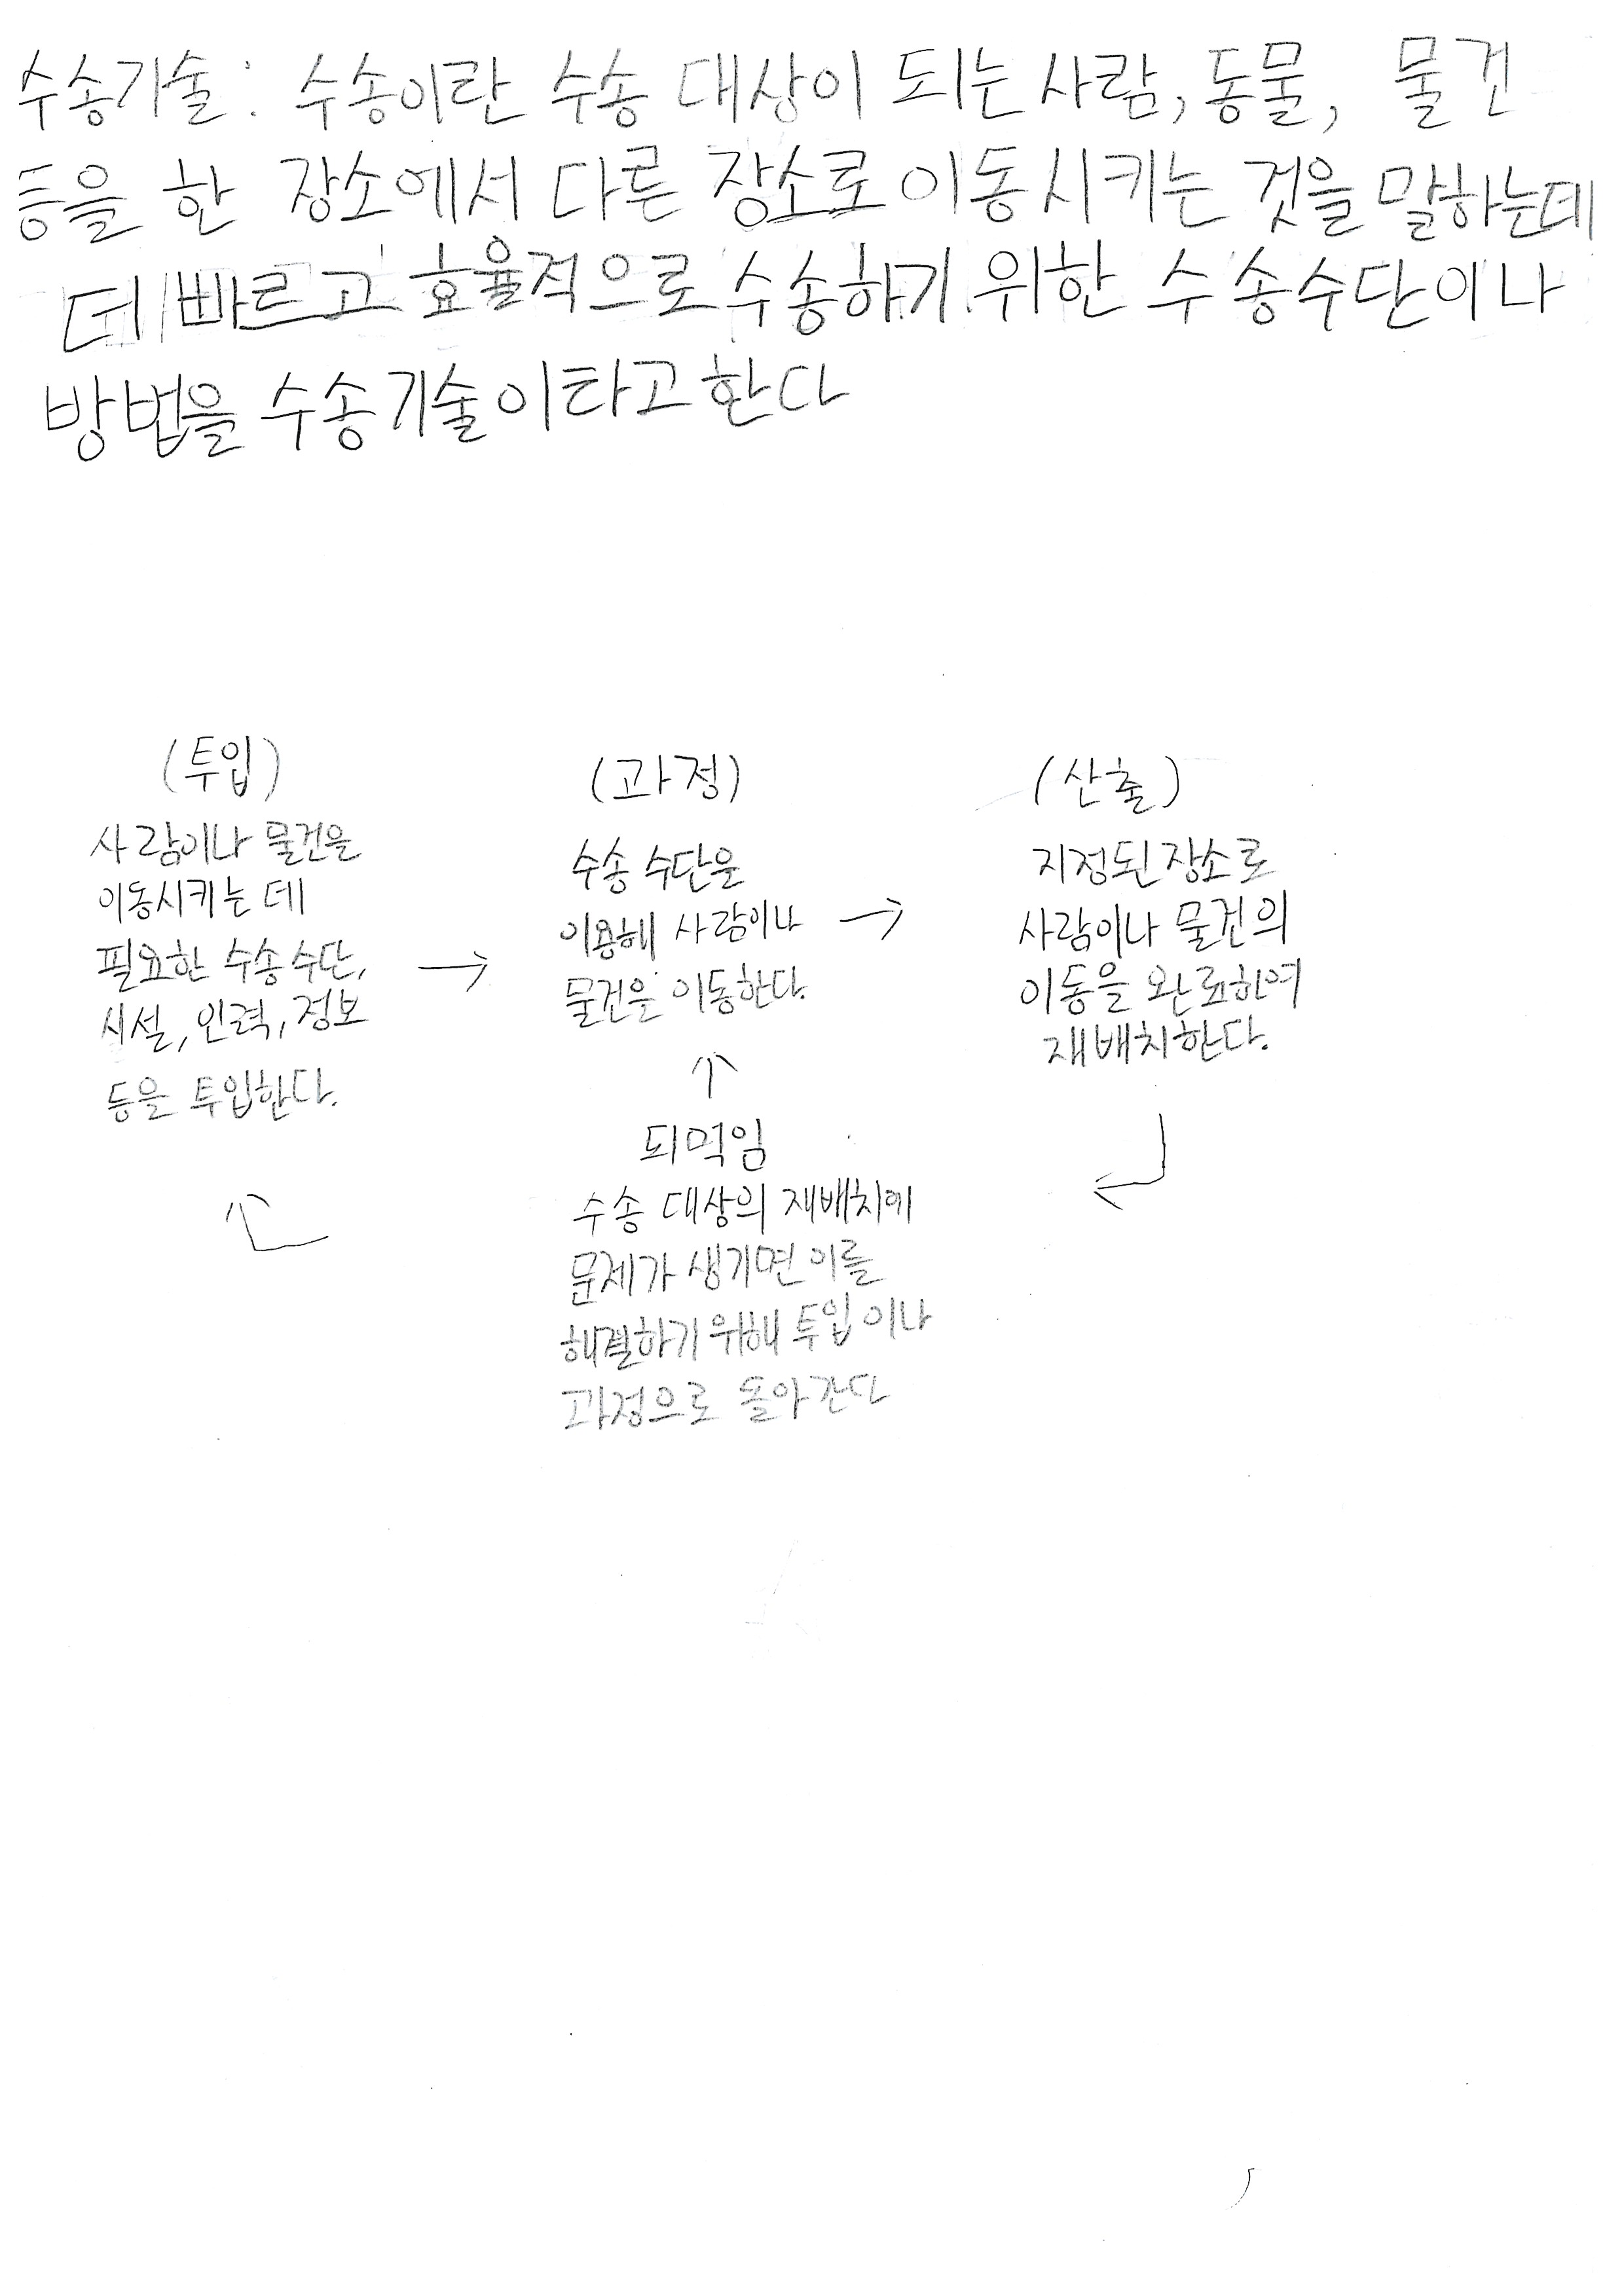 수송기술: 수송이란 수송 대상이 되는 사람, 동물, 물건
등을 한 장소에서 다른 장소로 이동시키는 것을 말하는데
더 빠르고 효율적으로 수송하기 위한 수송수단이나
방법을 수송기술이라고 한다
(투입)
사람이나 물건을
이동시키는 데
필요한 수송수단,
시설, 인력, 정보
등을 투입한다.
→
(과정)
수송 수단을
이용해 사람이나
물건을 이동한다.
→
(산출)
지정된 장소로
사람이나 물건의
이동을 완료하여
재배치한다.
↑
되먹임
수송 대상의 재배치에
문제가 생기면 이를
해결하기 위해 투입이나
과정으로 돌아간다